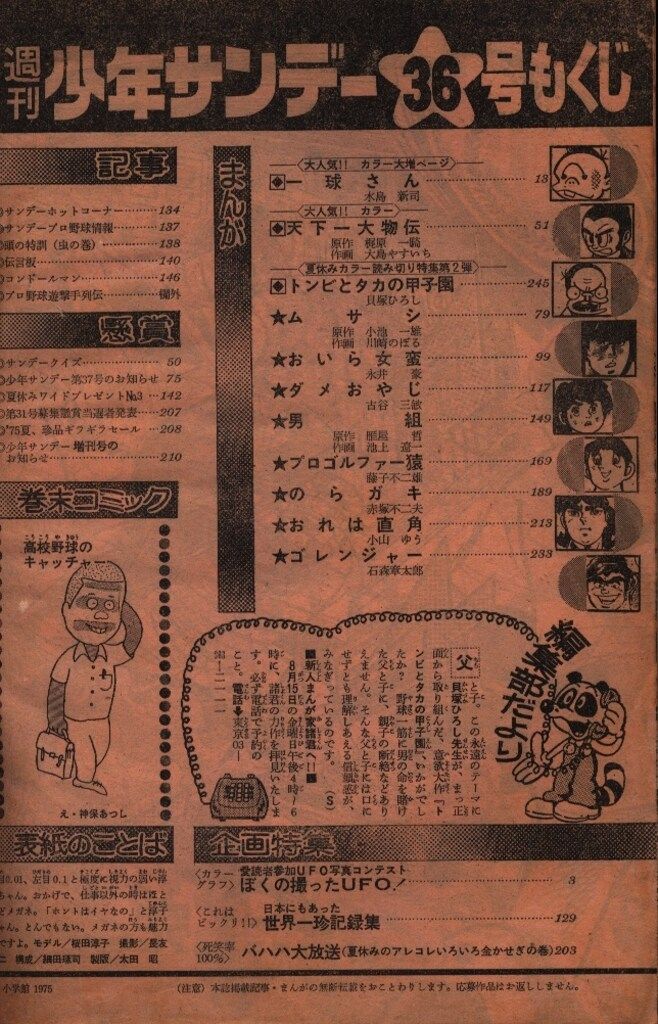 週刊少年サンデー36号もくじ
記事
サンデーホットコーナー………134
サンデープロ野球情報………137
頭の特訓（虫の巻）………138
伝言板………140
コンドールマン………146
プロ野球遊撃手列伝………欄外
懸賞
サンデークイズ………50
少年サンデー第37号のお知らせ 75
夏休みワイドプレゼント№3…142
第31号募集鑑賞当選者発表……207
'75夏、珍品ギラギラセール……208
少年サンデー増刊号の
お知らせ………210
まんが
〈大人気!! カラー大増ページ〉
一球さん………13
水島 新司
〈大人気!! カラー〉
天下一大物伝………51
原作 梶原 一騎
作画 大島やすいち
〈夏休みカラー読み切り特集第2弾〉
トンビとタカの甲子園………245
貝塚ひろし
★ムサシ………79
原作 小池 一雄
作画 川崎のぼる
★おいら女蛮………99
永井 豪
★ダメおやじ………117
古谷 三敏
★男組………149
原作 雁屋 哲
作画 池上 遼一
★プロゴルファー猿………169
藤子不二雄
★のらガキ………189
赤塚不二夫
★おれは直角………213
小山 ゆう
★ゴレンジャー………233
石森章太郎
巻末コミック
高校野球の
キャッチャ
え・神保あつし
編集部だより
父と子。この永遠のテーマに
貝塚ひろし先生が、まっ正
面から取り組んだ、意欲大作『ト
ンビとタカの甲子園』いかがでし
たか？ 野球一筋に男の命を賭け
た父と子に、親子の断絶などあり
えません。そんな父と子には口に
せずとも理解しあえる信頼感が、
みなぎっているのです。 （S）
■新人まんが家諸君へ!!■
8月15日の金曜日午後4時〜6
時に、諸君の力作を拝見いたしま
す。必ず電話で予約の
こと。電話・東京03―
表紙のことば
0.01、左目0.1と極度に視力の弱い淳
ちゃん。おかげで、仕事以外の時はほと
どメガネ。「ホントはイヤなの」と淳子
ゃん。とんでもない。メガネの方も魅力
ですよ。モデル／桜田淳子 撮影／
構成／細田瑛司 製版／太田 昭
企画特集
〈カラーグラフ〉愛読者参加UFO写真コンテスト
ぼくの撮ったUFO！………3
〈これはビックリ!!〉日本にもあった
世界一珍記録集………129
〈死笑率100％〉バハハ大放送（夏休みのアレコレいろいろ金かせぎの巻）203
小学館 1975
（注意）本誌掲載記事・まんがの無断転載をおことわりします。応募作品はお返ししません。